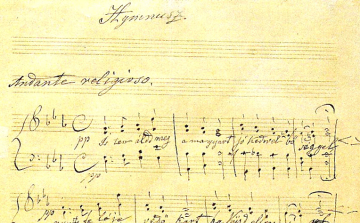 Hymnusz.
Andante religioso.
pp Is ten áldd meg a magyart Jó kedvel bő séggel
pp
fe léje védő kárt ha küzd ellen